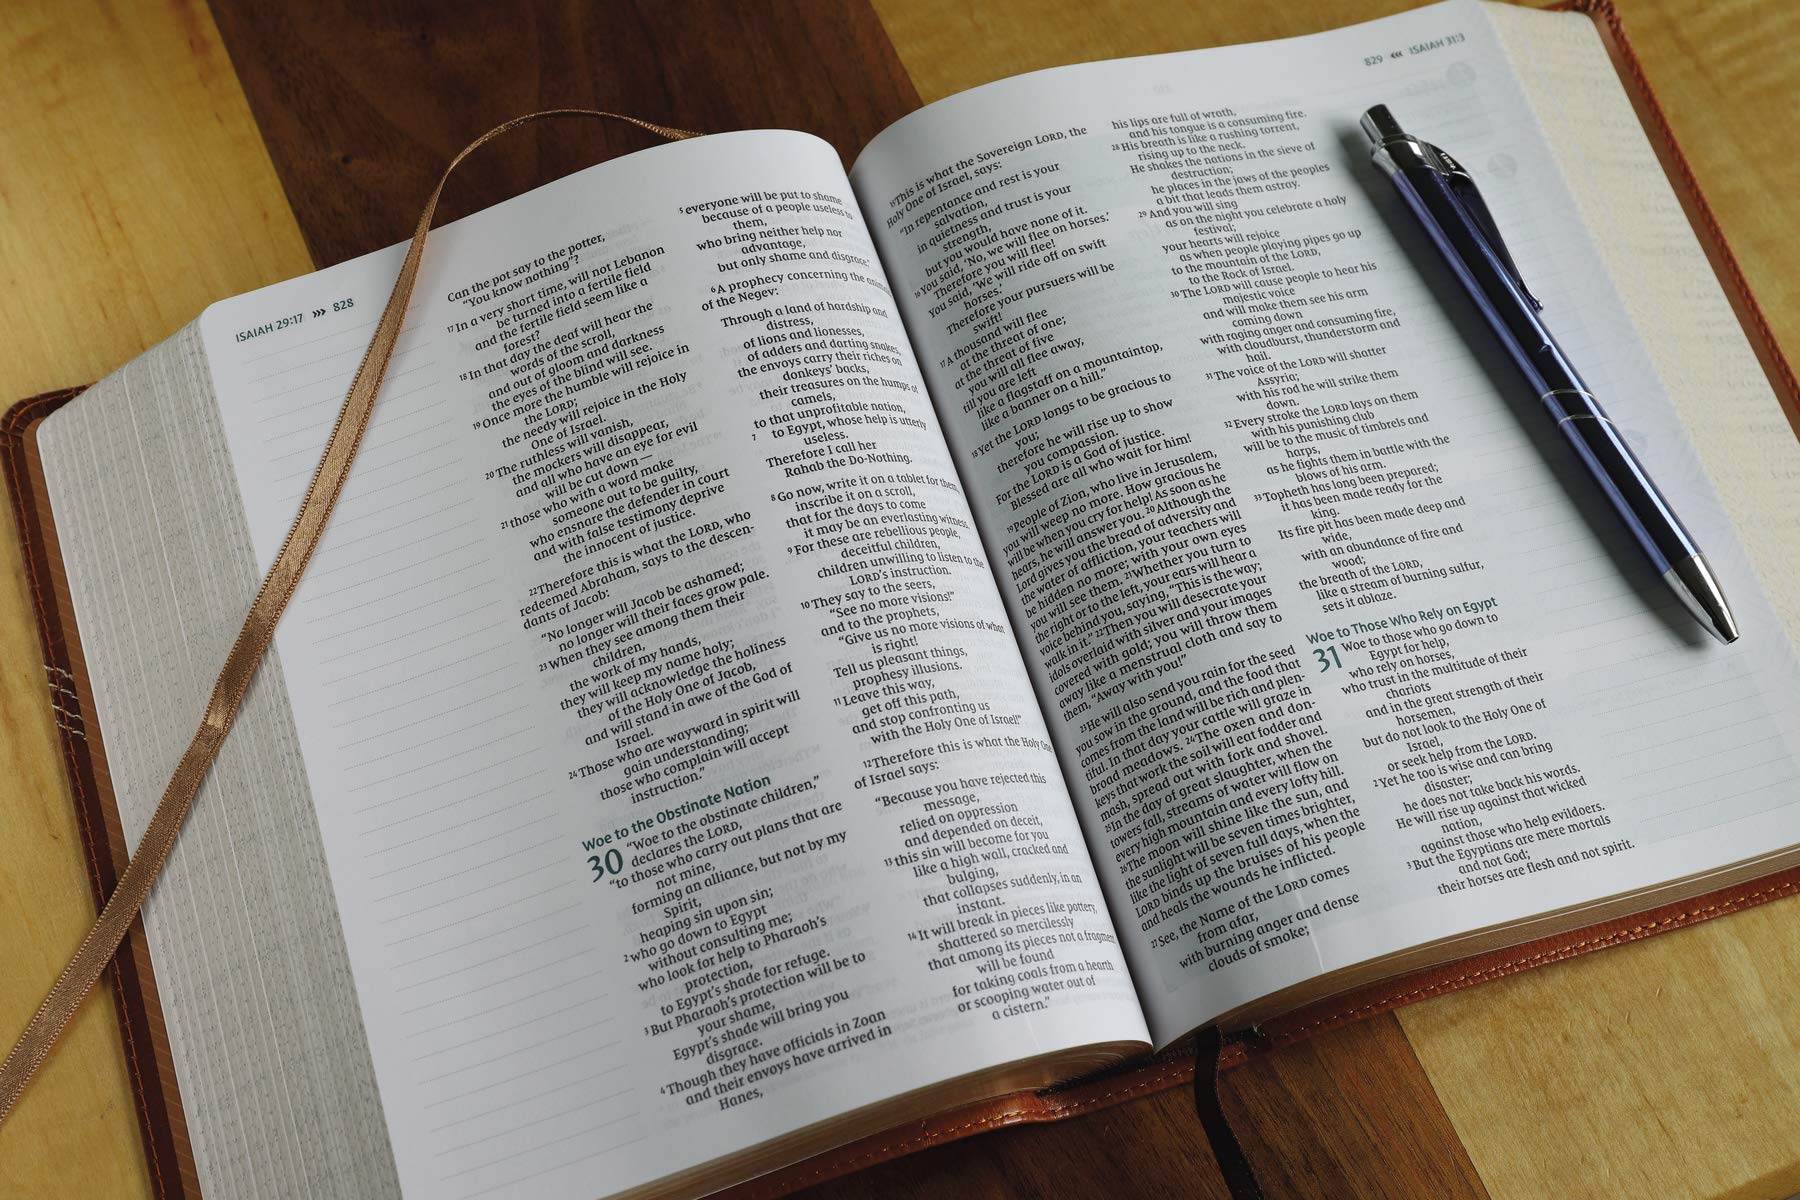 ISAIAH 29:17 ››› 828
Can the pot say to the potter,
“You know nothing”?
17 In a very short time, will not Lebanon
be turned into a fertile field
and the fertile field seem like a
forest?
18 In that day the deaf will hear the
words of the scroll,
and out of gloom and darkness
the eyes of the blind will see.
19 Once more the humble will rejoice in
the LORD;
the needy will rejoice in the Holy
One of Israel.
20 The ruthless will vanish,
the mockers will disappear,
and all who have an eye for evil
will be cut down—
21 those who with a word make
someone out to be guilty,
who ensnare the defender in court
and with false testimony deprive
the innocent of justice.
22 Therefore this is what the LORD, who
redeemed Abraham, says to the descen-
dants of Jacob:
“No longer will Jacob be ashamed;
no longer will their faces grow pale.
23 When they see among them their
children,
the work of my hands,
they will keep my name holy;
they will acknowledge the holiness
of the Holy One of Jacob,
and will stand in awe of the God of
Israel.
24 Those who are wayward in spirit will
gain understanding;
those who complain will accept
instruction.”
Woe to the Obstinate Nation
30 “Woe to the obstinate children,”
declares the LORD,
“to those who carry out plans that are
not mine,
forming an alliance, but not by my
Spirit,
heaping sin upon sin;
2 who go down to Egypt
without consulting me;
who look for help to Pharaoh’s
protection,
to Egypt’s shade for refuge.
3 But Pharaoh’s protection will be to
your shame,
Egypt’s shade will bring you
disgrace.
4 Though they have officials in Zoan
and their envoys have arrived in
Hanes,
5 everyone will be put to shame
because of a people useless to
them,
who bring neither help nor
advantage,
but only shame and disgrace.”
6 A prophecy concerning the animals
of the Negev:
Through a land of hardship and
distress,
of lions and lionesses,
of adders and darting snakes,
the envoys carry their riches on
donkeys’ backs,
their treasures on the humps of
camels,
to that unprofitable nation,
7 to Egypt, whose help is utterly
useless.
Therefore I call her
Rahab the Do-Nothing.
8 Go now, write it on a tablet for them,
inscribe it on a scroll,
that for the days to come
it may be an everlasting witness.
9 For these are rebellious people,
deceitful children,
children unwilling to listen to the
LORD’s instruction.
10 They say to the seers,
“See no more visions!”
and to the prophets,
“Give us no more visions of what
is right!
Tell us pleasant things,
prophesy illusions.
11 Leave this way,
get off this path,
and stop confronting us
with the Holy One of Israel!”
12 Therefore this is what the Holy One
of Israel says:
“Because you have rejected this
message,
relied on oppression
and depended on deceit,
13 this sin will become for you
like a high wall, cracked and
bulging,
that collapses suddenly, in an
instant.
14 It will break in pieces like pottery,
shattered so mercilessly
that among its pieces not a fragment
will be found
for taking coals from a hearth
or scooping water out of
a cistern.”
829 ‹‹‹ ISAIAH 31:3
15 This is what the Sovereign LORD, the
Holy One of Israel, says:
“In repentance and rest is your
salvation,
in quietness and trust is your
strength,
but you would have none of it.
16 You said, ‘No, we will flee on horses.’
Therefore you will flee!
You said, ‘We will ride off on swift
horses.’
Therefore your pursuers will be
swift!
17 A thousand will flee
at the threat of one;
at the threat of five
you will all flee away,
till you are left
like a flagstaff on a mountaintop,
like a banner on a hill.”
18 Yet the LORD longs to be gracious to
you;
therefore he will rise up to show
you compassion.
For the LORD is a God of justice.
Blessed are all who wait for him!
19 People of Zion, who live in Jerusalem,
you will weep no more. How gracious he
will be when you cry for help! As soon as he
hears, he will answer you. 20 Although the
Lord gives you the bread of adversity and
the water of affliction, your teachers will
be hidden no more; with your own eyes
you will see them. 21 Whether you turn to
the right or to the left, your ears will hear a
voice behind you, saying, “This is the way;
walk in it.” 22 Then you will desecrate your
idols overlaid with silver and your images
covered with gold; you will throw them
away like a menstrual cloth and say to
them, “Away with you!”
23 He will also send you rain for the seed
you sow in the ground, and the food that
comes from the land will be rich and plen-
tiful. In that day your cattle will graze in
broad meadows. 24 The oxen and don-
keys that work the soil will eat fodder and
mash, spread out with fork and shovel.
25 In the day of great slaughter, when the
towers fall, streams of water will flow on
every high mountain and every lofty hill.
26 The moon will shine like the sun, and
the sunlight will be seven times brighter,
like the light of seven full days, when the
LORD binds up the bruises of his people
and heals the wounds he inflicted.
27 See, the Name of the LORD comes
from afar,
with burning anger and dense
clouds of smoke;
his lips are full of wrath,
and his tongue is a consuming fire.
28 His breath is like a rushing torrent,
rising up to the neck.
He shakes the nations in the sieve of
destruction;
he places in the jaws of the peoples
a bit that leads them astray.
29 And you will sing
as on the night you celebrate a holy
festival;
your hearts will rejoice
as when people playing pipes go up
to the mountain of the LORD,
to the Rock of Israel.
30 The LORD will cause people to hear his
majestic voice
and will make them see his arm
coming down
with raging anger and consuming fire,
with cloudburst, thunderstorm and
hail.
31 The voice of the LORD will shatter
Assyria;
with his rod he will strike them
down.
32 Every stroke the LORD lays on them
with his punishing club
will be to the music of timbrels and
harps,
as he fights them in battle with the
blows of his arm.
33 Topheth has long been prepared;
it has been made ready for the
king.
Its fire pit has been made deep and
wide,
with an abundance of fire and
wood;
the breath of the LORD,
like a stream of burning sulfur,
sets it ablaze.
Woe to Those Who Rely on Egypt
31 Woe to those who go down to
Egypt for help,
who rely on horses,
who trust in the multitude of their
chariots
and in the great strength of their
horsemen,
but do not look to the Holy One of
Israel,
or seek help from the LORD.
2 Yet he too is wise and can bring
disaster;
he does not take back his words.
He will rise up against that wicked
nation,
against those who help evildoers.
3 But the Egyptians are mere mortals
and not God;
their horses are flesh and not spirit.